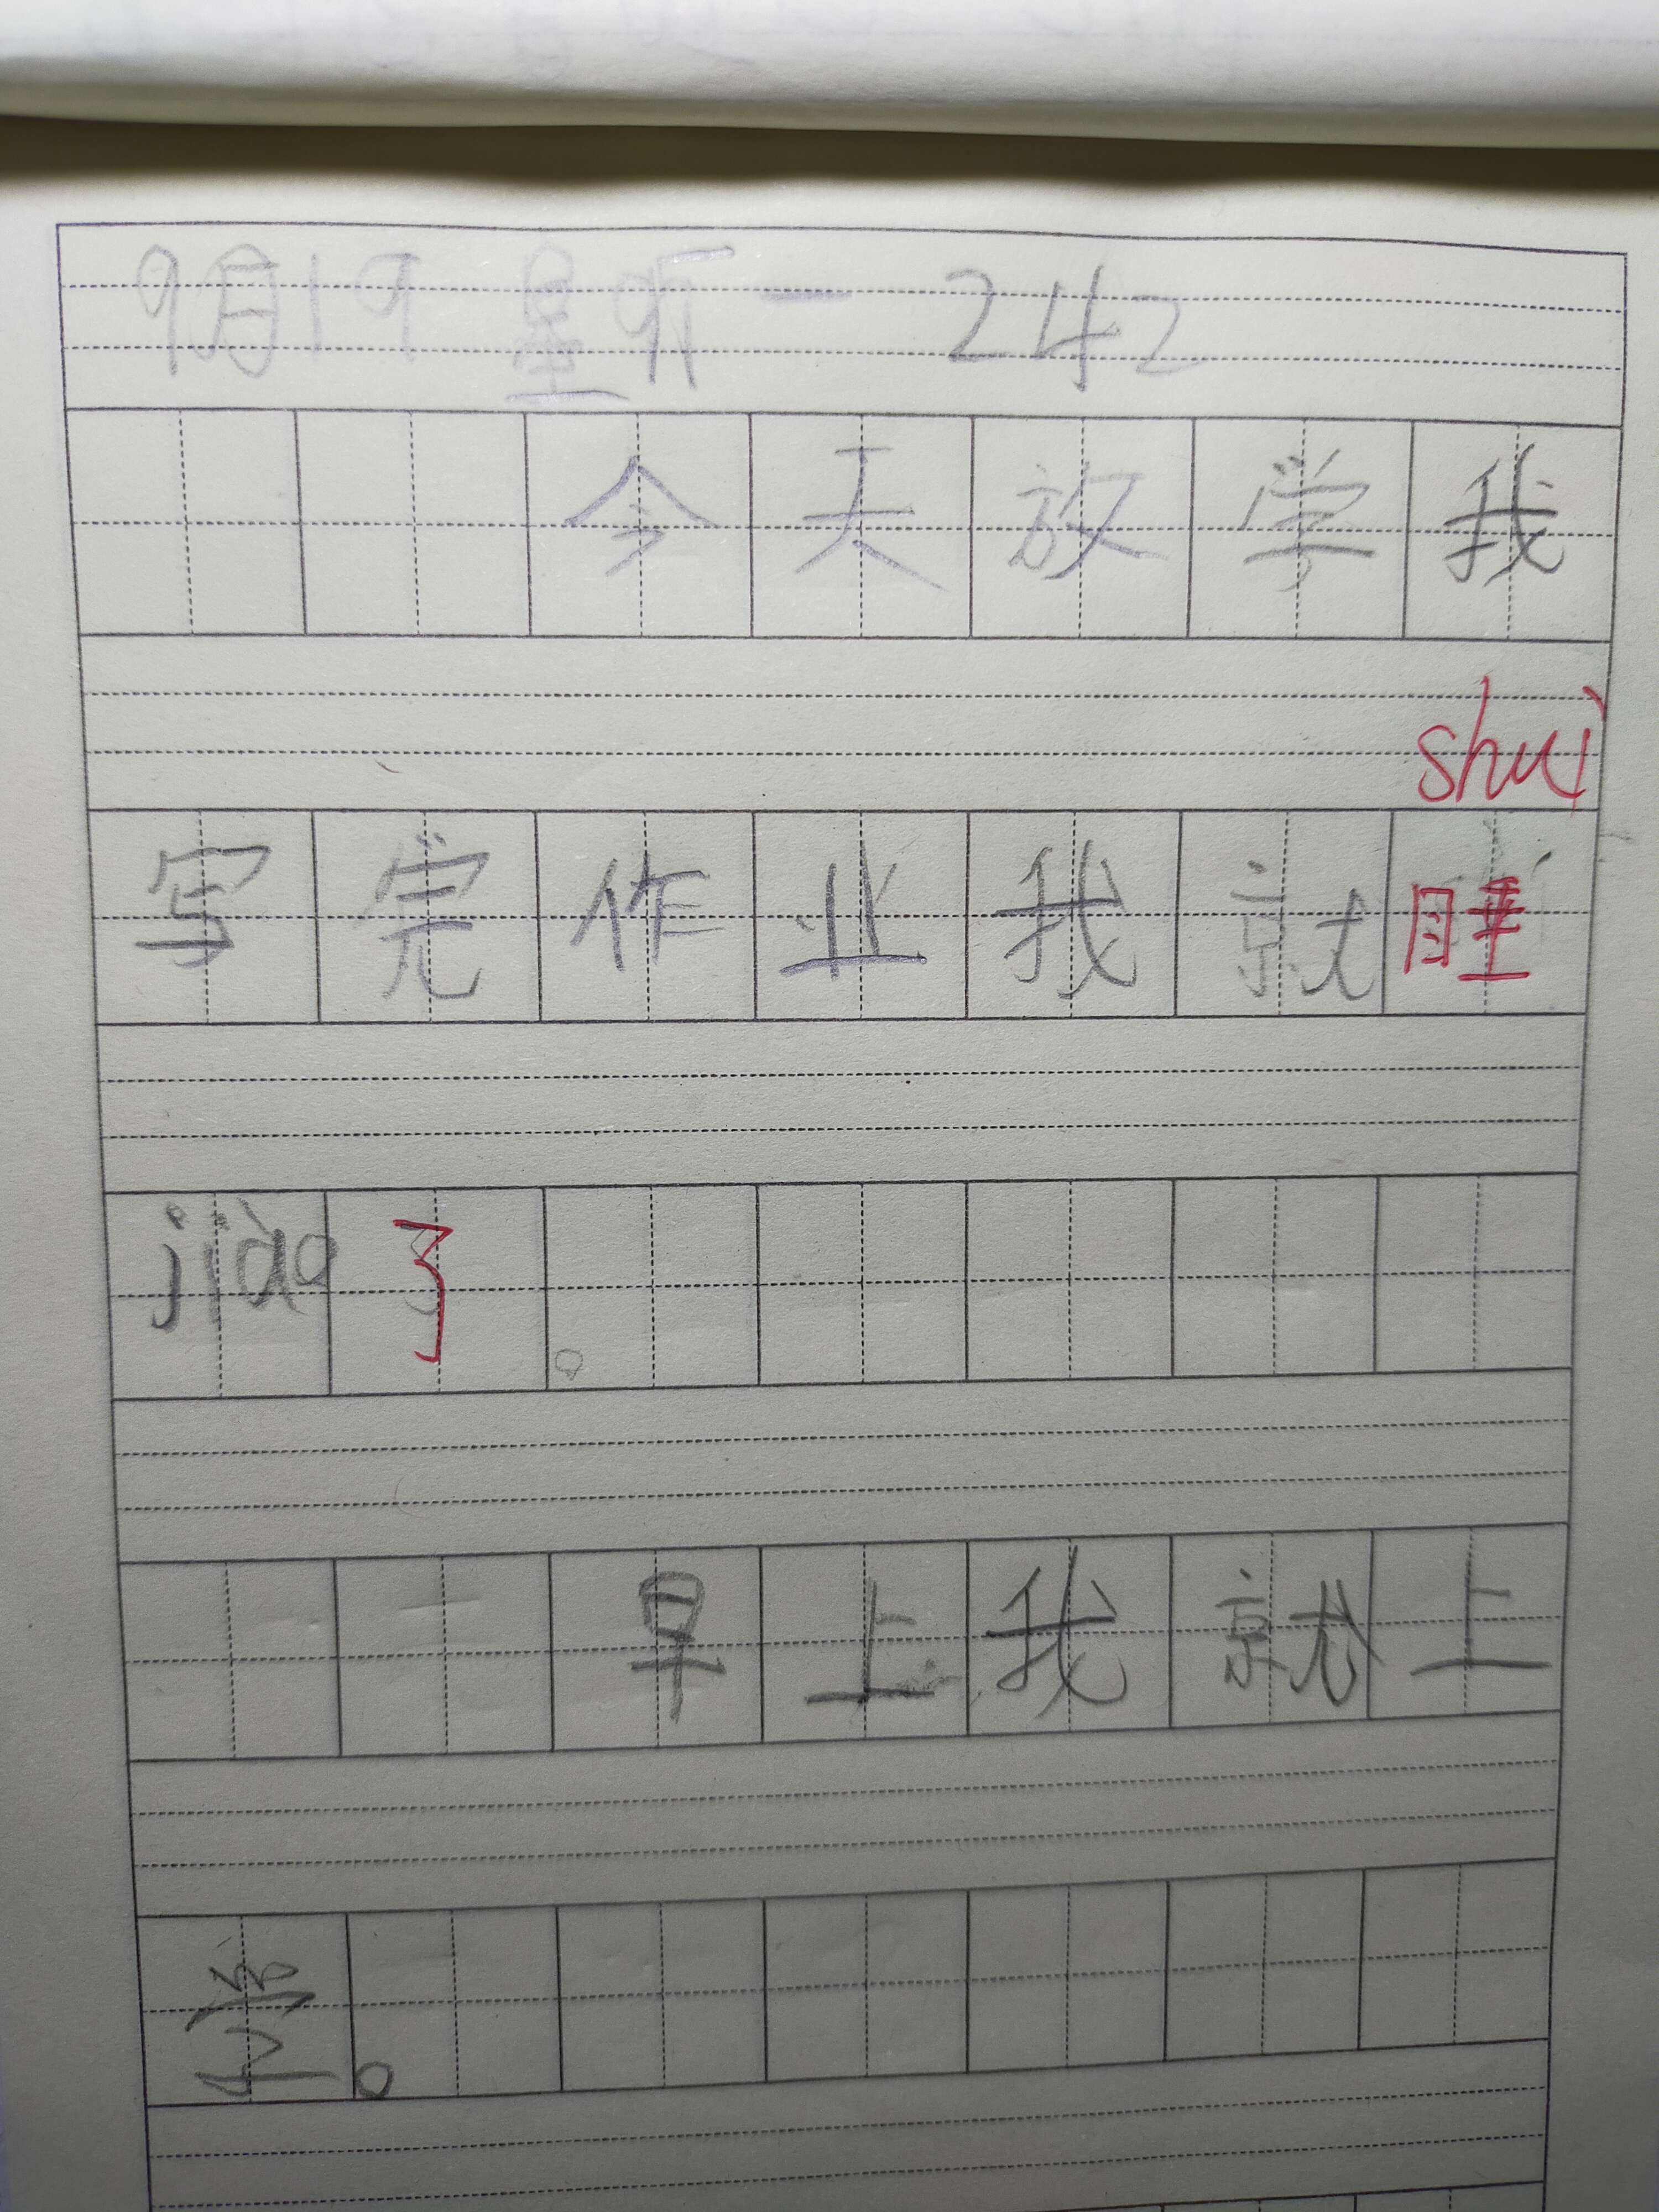 9月19 星期一 242
今天放学我
shuì
写完作业我就睡
jiào了。
早上我就上
学。